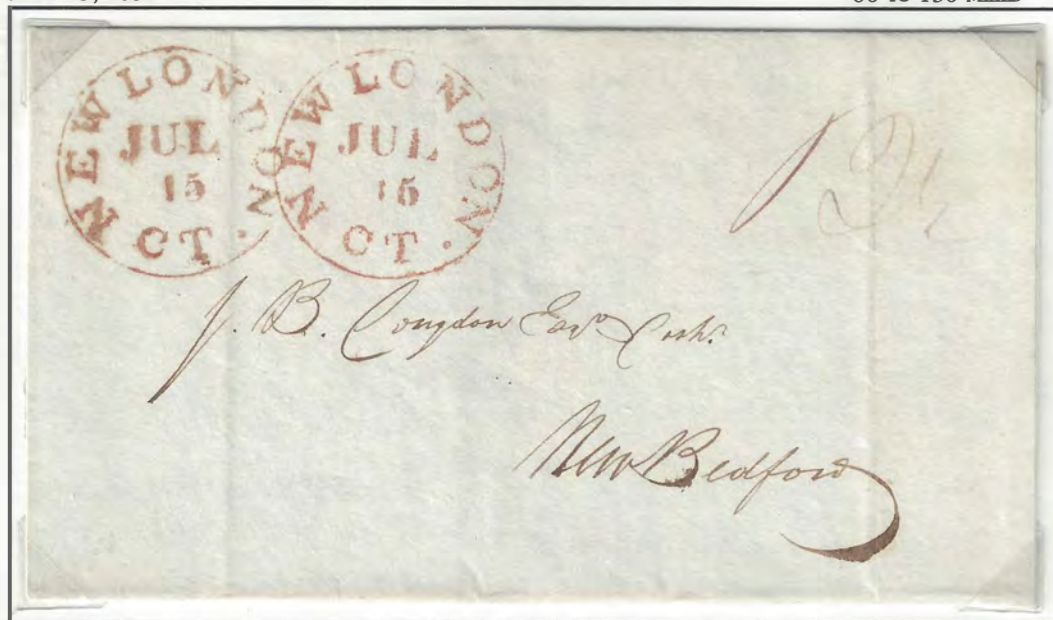 NEW LONDON
JUL
15
CT.
NEW LONDON
JUL
15
CT.
12½
J. B. Congdon Esqr Cashr
New Bedford